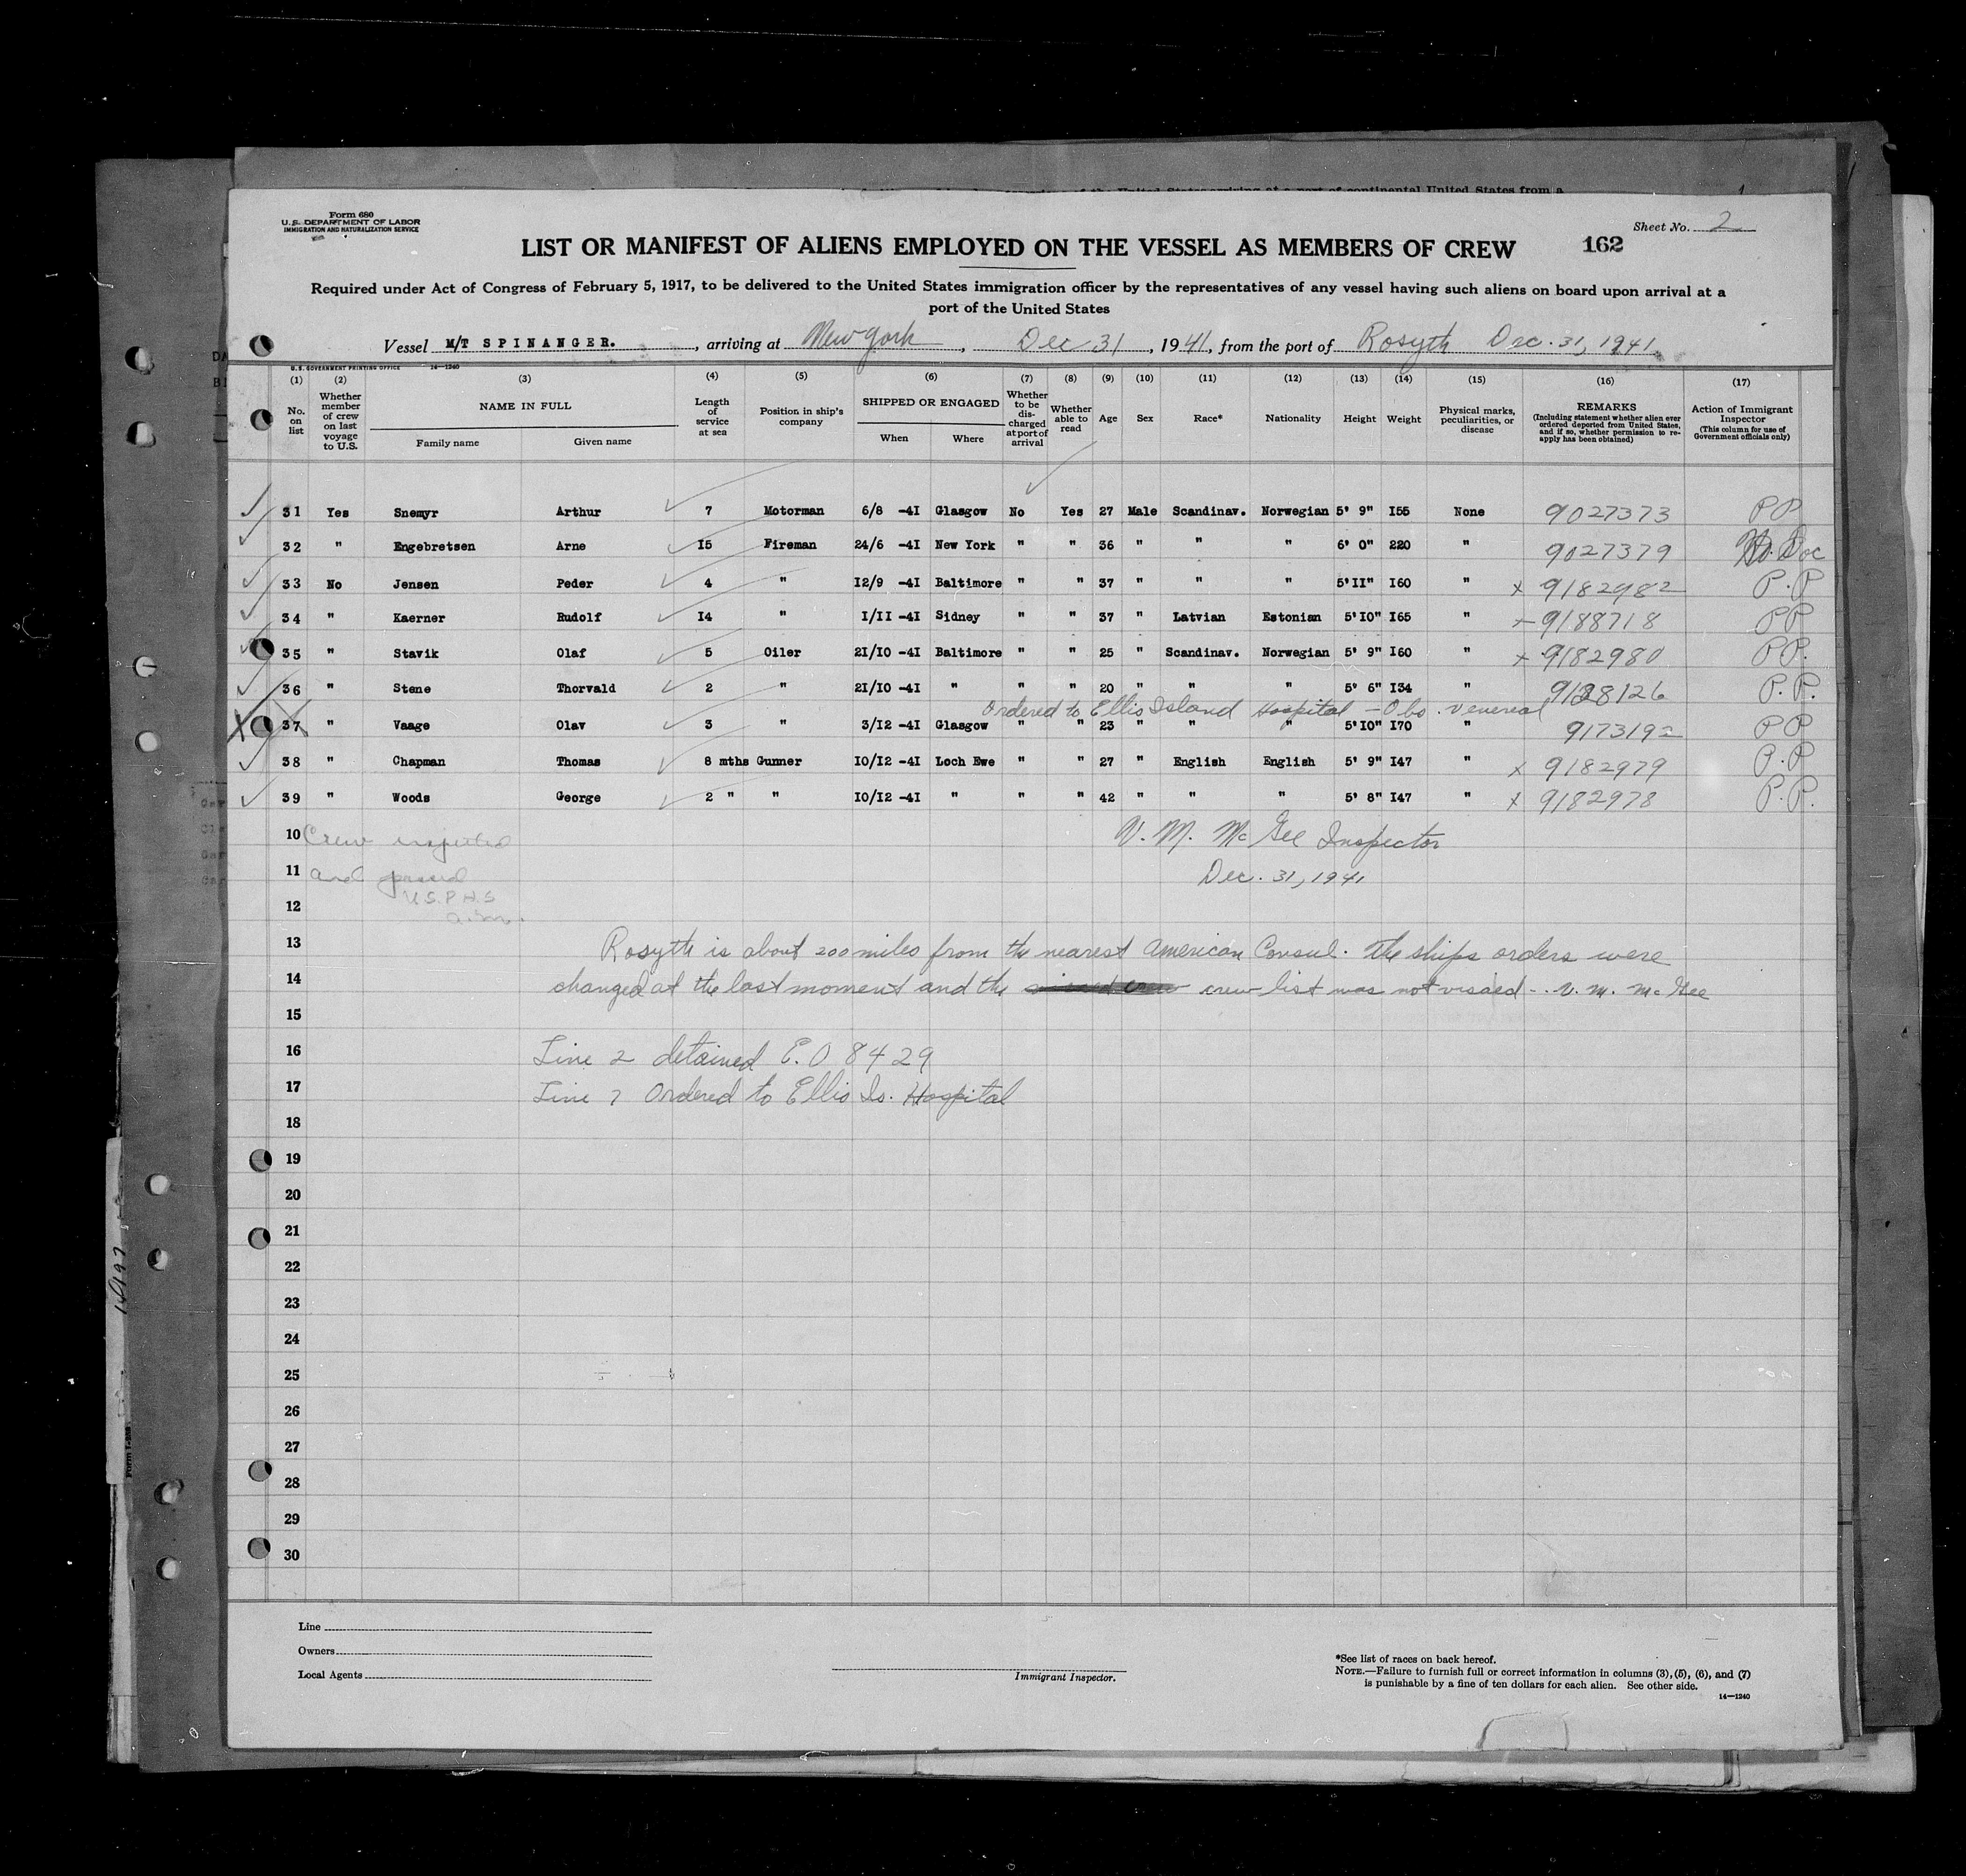 Form 680
U.S. DEPARTMENT OF LABOR
IMMIGRATION AND NATURALIZATION SERVICE
Sheet No. 2
LIST OR MANIFEST OF ALIENS EMPLOYED ON THE VESSEL AS MEMBERS OF CREW 162
Required under Act of Congress of February 5, 1917, to be delivered to the United States immigration officer by the representatives of any vessel having such aliens on board upon arrival at a
port of the United States
Vessel M/T SPINANGER. , arriving at New York , Dec 31 , 1941, from the port of Rosyth Dec. 31, 1941.
U.S. GOVERNMENT PRINTING OFFICE 14—1240
(1) (2) (3) (4) (5) (6) (7) (8) (9) (10) (11) (12) (13) (14) (15) (16) (17)
No. on list
Whether member of crew on last voyage to U.S.
NAME IN FULL
Family name Given name
Length of service at sea
Position in ship's company
SHIPPED OR ENGAGED
When Where
Whether to be discharged at port of arrival
Whether able to read
Age Sex Race* Nationality Height Weight
Physical marks, peculiarities, or disease
REMARKS
(Including statement whether alien ever ordered deported from United States, and if so, whether permission to re-apply has been obtained)
Action of Immigrant Inspector
(This column for use of Government officials only)
31 Yes Snemyr Arthur 7 Motorman 6/8 -4I Glasgow No Yes 27 Male Scandinav. Norwegian 5' 9" I55 None 9027373 PP
32 " Engebretsen Arne I5 Fireman 24/6 -4I New York " " 36 " " " 6' 0" 220 " 9027379 No. Doc
33 No Jensen Peder 4 " I2/9 -4I Baltimore " " 37 " " " 5'II" I60 " x 9182982 P.P
34 " Kaerner Rudolf I4 " I/II -4I Sidney " " 37 " Latvian Estonian 5'I0" I65 " x 9188718 PP
35 " Stavik Olaf 5 Oiler 2I/I0 -4I Baltimore " " 25 " Scandinav. Norwegian 5' 9" I60 " x 9182980 PP.
36 " Stene Thorvald 2 " 2I/I0 -4I " " " 20 " " " 5' 6" I34 " 9128126 P.P.
Ordered to Ellis Island Hospital - Obs. venereal
37 " Vaage Olav 3 " 3/I2 -4I Glasgow " " 23 " " " 5'I0" I70 " 9173192 PP
38 " Chapman Thomas 8 mths Gunner I0/I2 -4I Loch Ewe " " 27 " English English 5' 9" I47 " x 9182979 P.P
39 " Woods George 2 " " I0/I2 -4I " " " 42 " " " 5' 8" I47 " x 9182978 P.P.
10 Crew inspected V. M. McGee Inspector
11 and passed Dec. 31, 1941
U.S.P.H.S
12
13 Rosyth is about 200 miles from the nearest American Consul. The ships orders were
14 changed at the last moment and the crew list was not visaed -. V. M. McGee
15
16 Line 2 detained E.O 8429
17 Line 7 Ordered to Ellis Is. Hospital
18
19
20
21
22
23
24
25
26
27
28
29
30
Line
Owners
Local Agents
Immigrant Inspector.
*See list of races on back hereof.
NOTE.—Failure to furnish full or correct information in columns (3), (5), (6), and (7)
is punishable by a fine of ten dollars for each alien. See other side.
14—1240